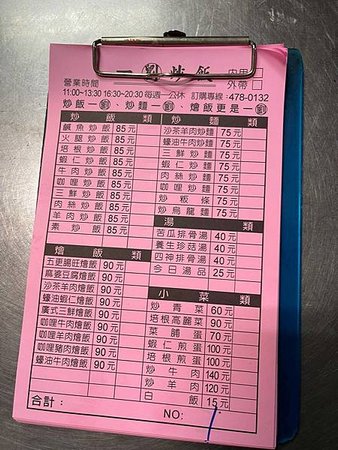 一劉炒飯
內用
外帶
營業時間
11:00~13:30 16:30~20:30 每週一公休 訂購專線:478-0132
炒飯一劉、炒麵一劉、燴飯更是一劉
炒飯類
鹹魚炒飯 85元
火腿炒飯 85元
培根炒飯 85元
蝦仁炒飯 85元
牛肉炒飯 85元
咖哩炒飯 85元
三鮮炒飯 85元
肉絲炒飯 85元
羊肉炒飯 85元
素炒飯 85元
炒麵類
沙茶羊肉炒麵 75元
蠔油牛肉炒麵 75元
三鮮炒麵 75元
蝦仁炒麵 75元
肉絲炒麵 75元
咖哩炒麵 75元
炒粄條 75元
炒烏龍麵 75元
湯類
苦瓜排骨湯 40元
養生珍菇湯 40元
四神排骨湯 40元
今日湯品 25元
燴飯類
五更腸旺燴飯 90元
麻婆豆腐燴飯 90元
沙茶羊肉燴飯 90元
蠔油蝦仁燴飯 90元
廣式三鮮燴飯 90元
咖哩牛肉燴飯 90元
咖哩羊肉燴飯 90元
咖哩豬肉燴飯 90元
蠔油牛肉燴飯 90元
小菜類
炒青菜 60元
培根高麗菜 90元
菜脯蛋 70元
蝦仁煎蛋 100元
培根煎蛋 100元
炒牛肉 140元
炒羊肉 120元
白飯 15元
合計:
NO: